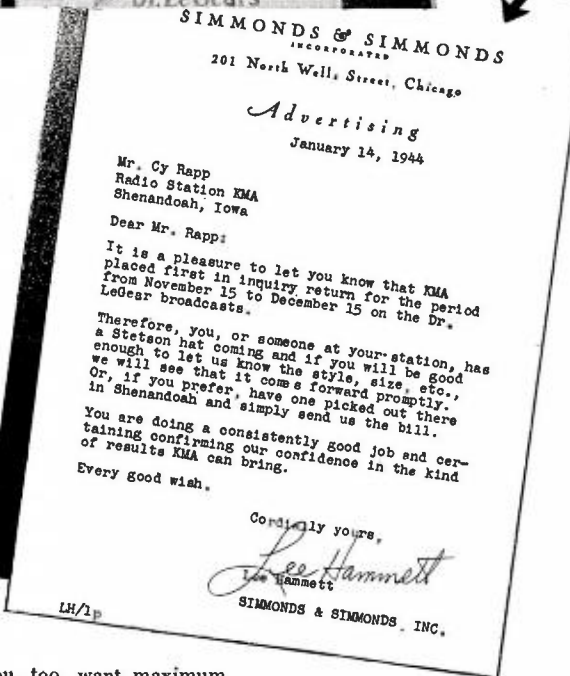 SIMMONDS & SIMMONDS
INCORPORATED
201 North Wells Street, Chicago
Advertising
January 14, 1944
Mr. Cy Rapp
Radio Station KMA
Shenandoah, Iowa
Dear Mr. Rapp:
It is a pleasure to let you know that KMA
placed first in inquiry return for the period
from November 15 to December 15 on the Dr.
LeGear broadcasts.
Therefore, you, or someone at your station, has
a Stetson hat coming and if you will be good
enough to let us know the style, size, etc.,
we will see that it comes forward promptly.
Or, if you prefer, have one picked out there
in Shenandoah and simply send us the bill.
You are doing a consistently good job and cer-
taining confirming our confidence in the kind
of results KMA can bring.
Every good wish.
Cordially yours,
Lee Hammett
Lee Hammett
SIMMONDS & SIMMONDS, INC.
LH/lp
too want maximum